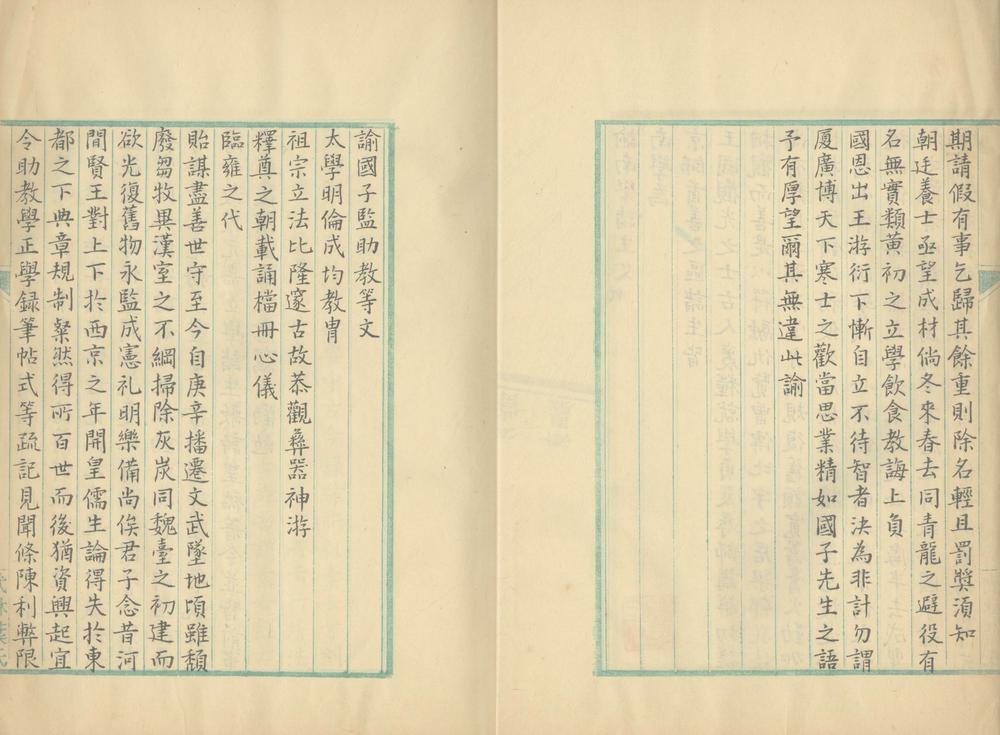 期請假有事乞歸其餘重則除名輕且罰獎須知
朝廷養士亟望成材倘冬來春去同青龍之避役有
名無實類黃初之立學飲食教誨上負
國恩出王游衍下慚自立不待智者決為非計勿謂
廈廣博天下寒士之歡當思業精如國子先生之語
予有厚望爾其無違此諭
諭國子監助教等文
太學明倫成均教胄
祖宗立法比隆邃古故恭觀彝器神游
釋尊之朝載誦檔冊心儀
臨雍之代
貽謀盡善世守至今自庚辛播遷文武墜地頃雖頹
廢芻牧異漢室之不綱掃除灰炭同魏臺之初建而
欲光復舊物永監成憲礼明樂備尚俟君子念昔河
間賢王對上下於西京之年開皇儒生論得失於東
都之下典章規制粲然得所百世而後猶資興起宜
令助教學正學録筆帖式等疏記見聞條陳利弊限